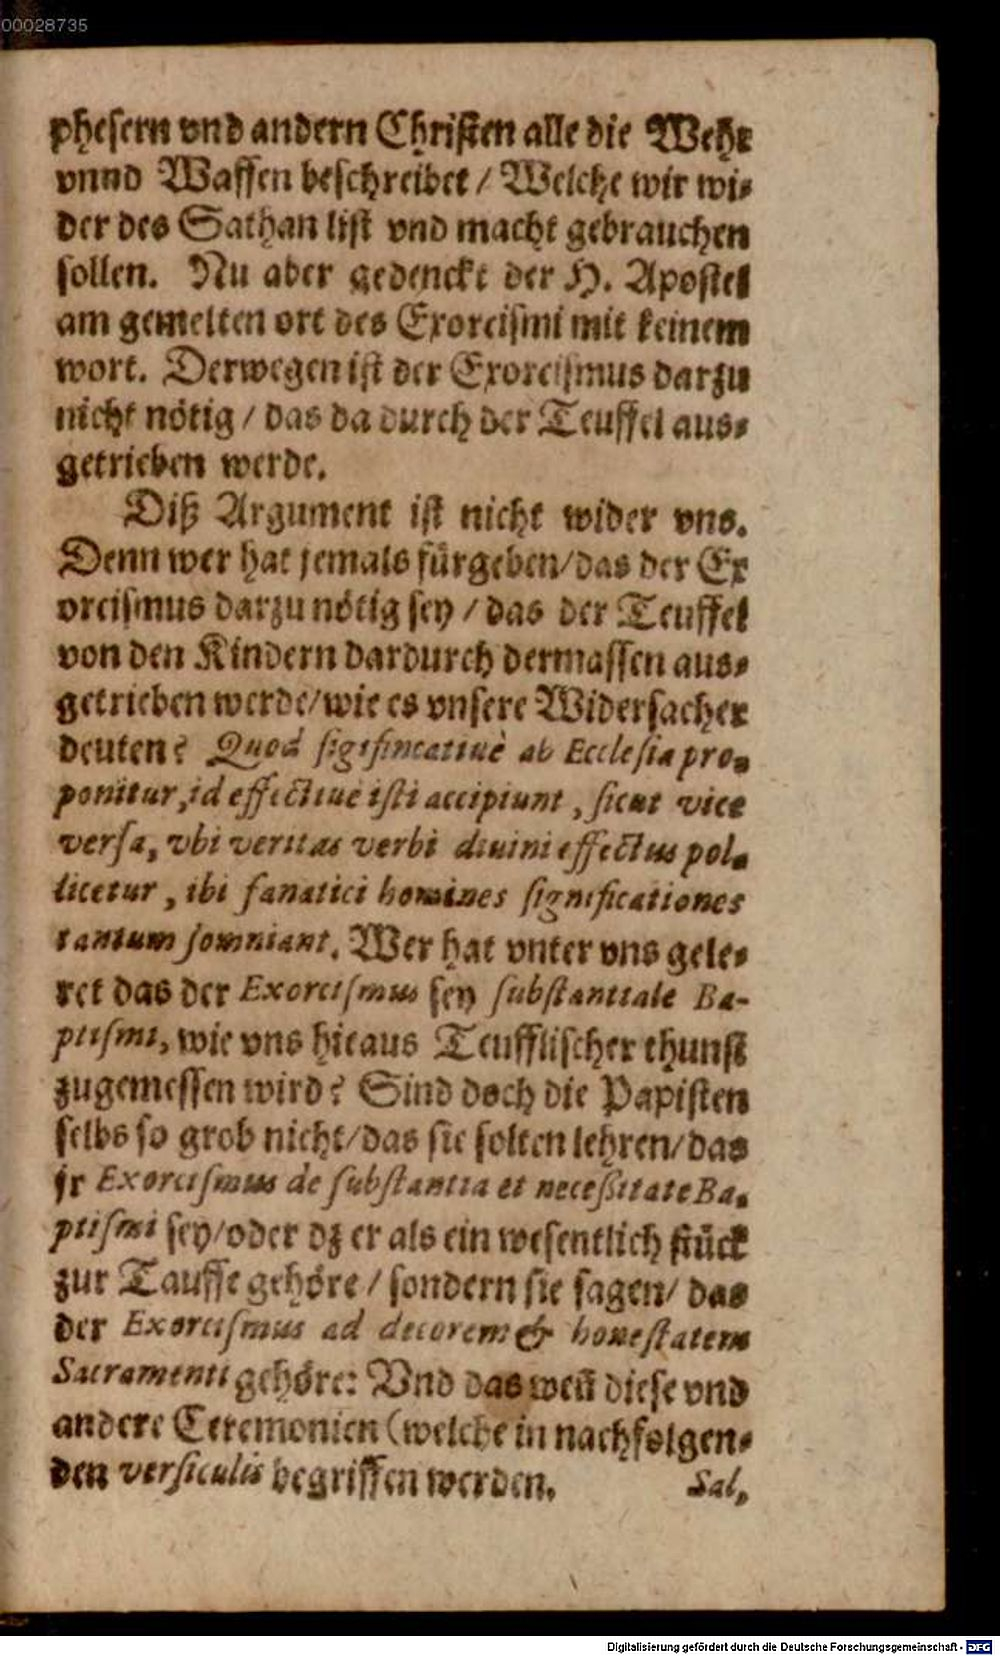 00028735
phesern vnd andern Christen alle die Wehr
vnnd Waffen beschreibet / Welche wir wi⸗
der des Sathan list vnd macht gebrauchen
sollen. Nu aber gedenckt der H. Apostel
am gemelten ort des Exorcismi mit keinem
wort. Derwegen ist der Exorcismus darzu
nicht nötig / das da durch der Teuffel aus⸗
getrieben werde.
Diß Argument ist nicht wider vns.
Denn wer hat jemals fürgeben / das der Ex
orcismus darzu nötig sey / das der Teuffel
von den Kindern dardurch dermassen aus⸗
getrieben werde / wie es vnsere Widersacher
deuten? Quod sigifincatiuè ab Ecclesia pro-
ponitur, id effectiuè isti accipiunt, sicut vice
versa, vbi veritas verbi diuini effectus pol-
licetur, ibi fanatici homines significationes
tantum somniant. Wer hat vnter vns gele⸗
ret das der Exorcismus sey substantiale Ba-
ptismi, wie vns hieaus Teufflischer thunst
zugemessen wird? Sind doch die Papisten
selbs so grob nicht / das sie solten lehren / das
jr Exorcismus de substantia et necessitate Ba-
ptismi sey / oder dz er als ein wesentlich stück
zur Tauffe gehöre / sondern sie sagen / das
der Exorcismus ad decorem & honestatem
Sacramenti gehöre: Vnd das weñ diese vnd
andere Ceremonien (welche in nachfolgen⸗
den versiculis begriffen werden.
Sal,
Digitalisierung gefördert durch die Deutsche Forschungsgemeinschaft - DFG